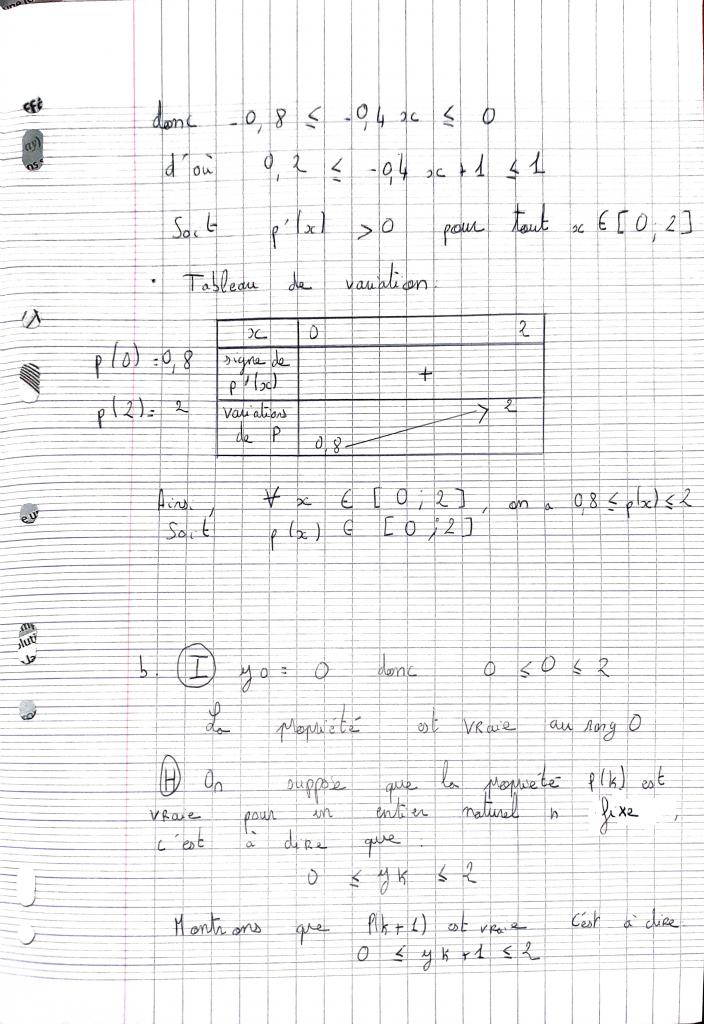 donc -0,8 ≤ -0,4 x ≤ 0
d'où 0,2 ≤ -0,4 x + 1 ≤ 1
Soit p'(x) > 0 pour tout x ∈ [0 ; 2]
• Tableau de variation:
x 0 2
p(0) = 0,8
signe de p'(x) +
p(2) = 2
variations de P 0,8 2
Ainsi, ∀ x ∈ [0 ; 2], on a 0,8 ≤ p(x) ≤ 2
Soit p(x) ∈ [0 ; 2]
b. (I) y0 = 0 donc 0 ≤ 0 ≤ 2
La propriété est vraie au rang 0
(H) On suppose que la propriété P(k) est
vraie pour un entier naturel n fixe,
c'est à dire que :
0 ≤ yk ≤ 2
Montrons que P(k+1) est vraie C'est à dire
0 ≤ yk+1 ≤ 2